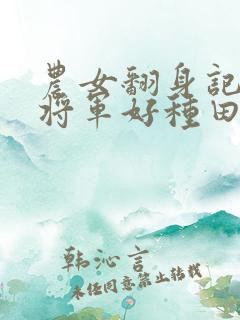 農女翻身記
將軍好種田
韩沁言
未经同意禁止转载